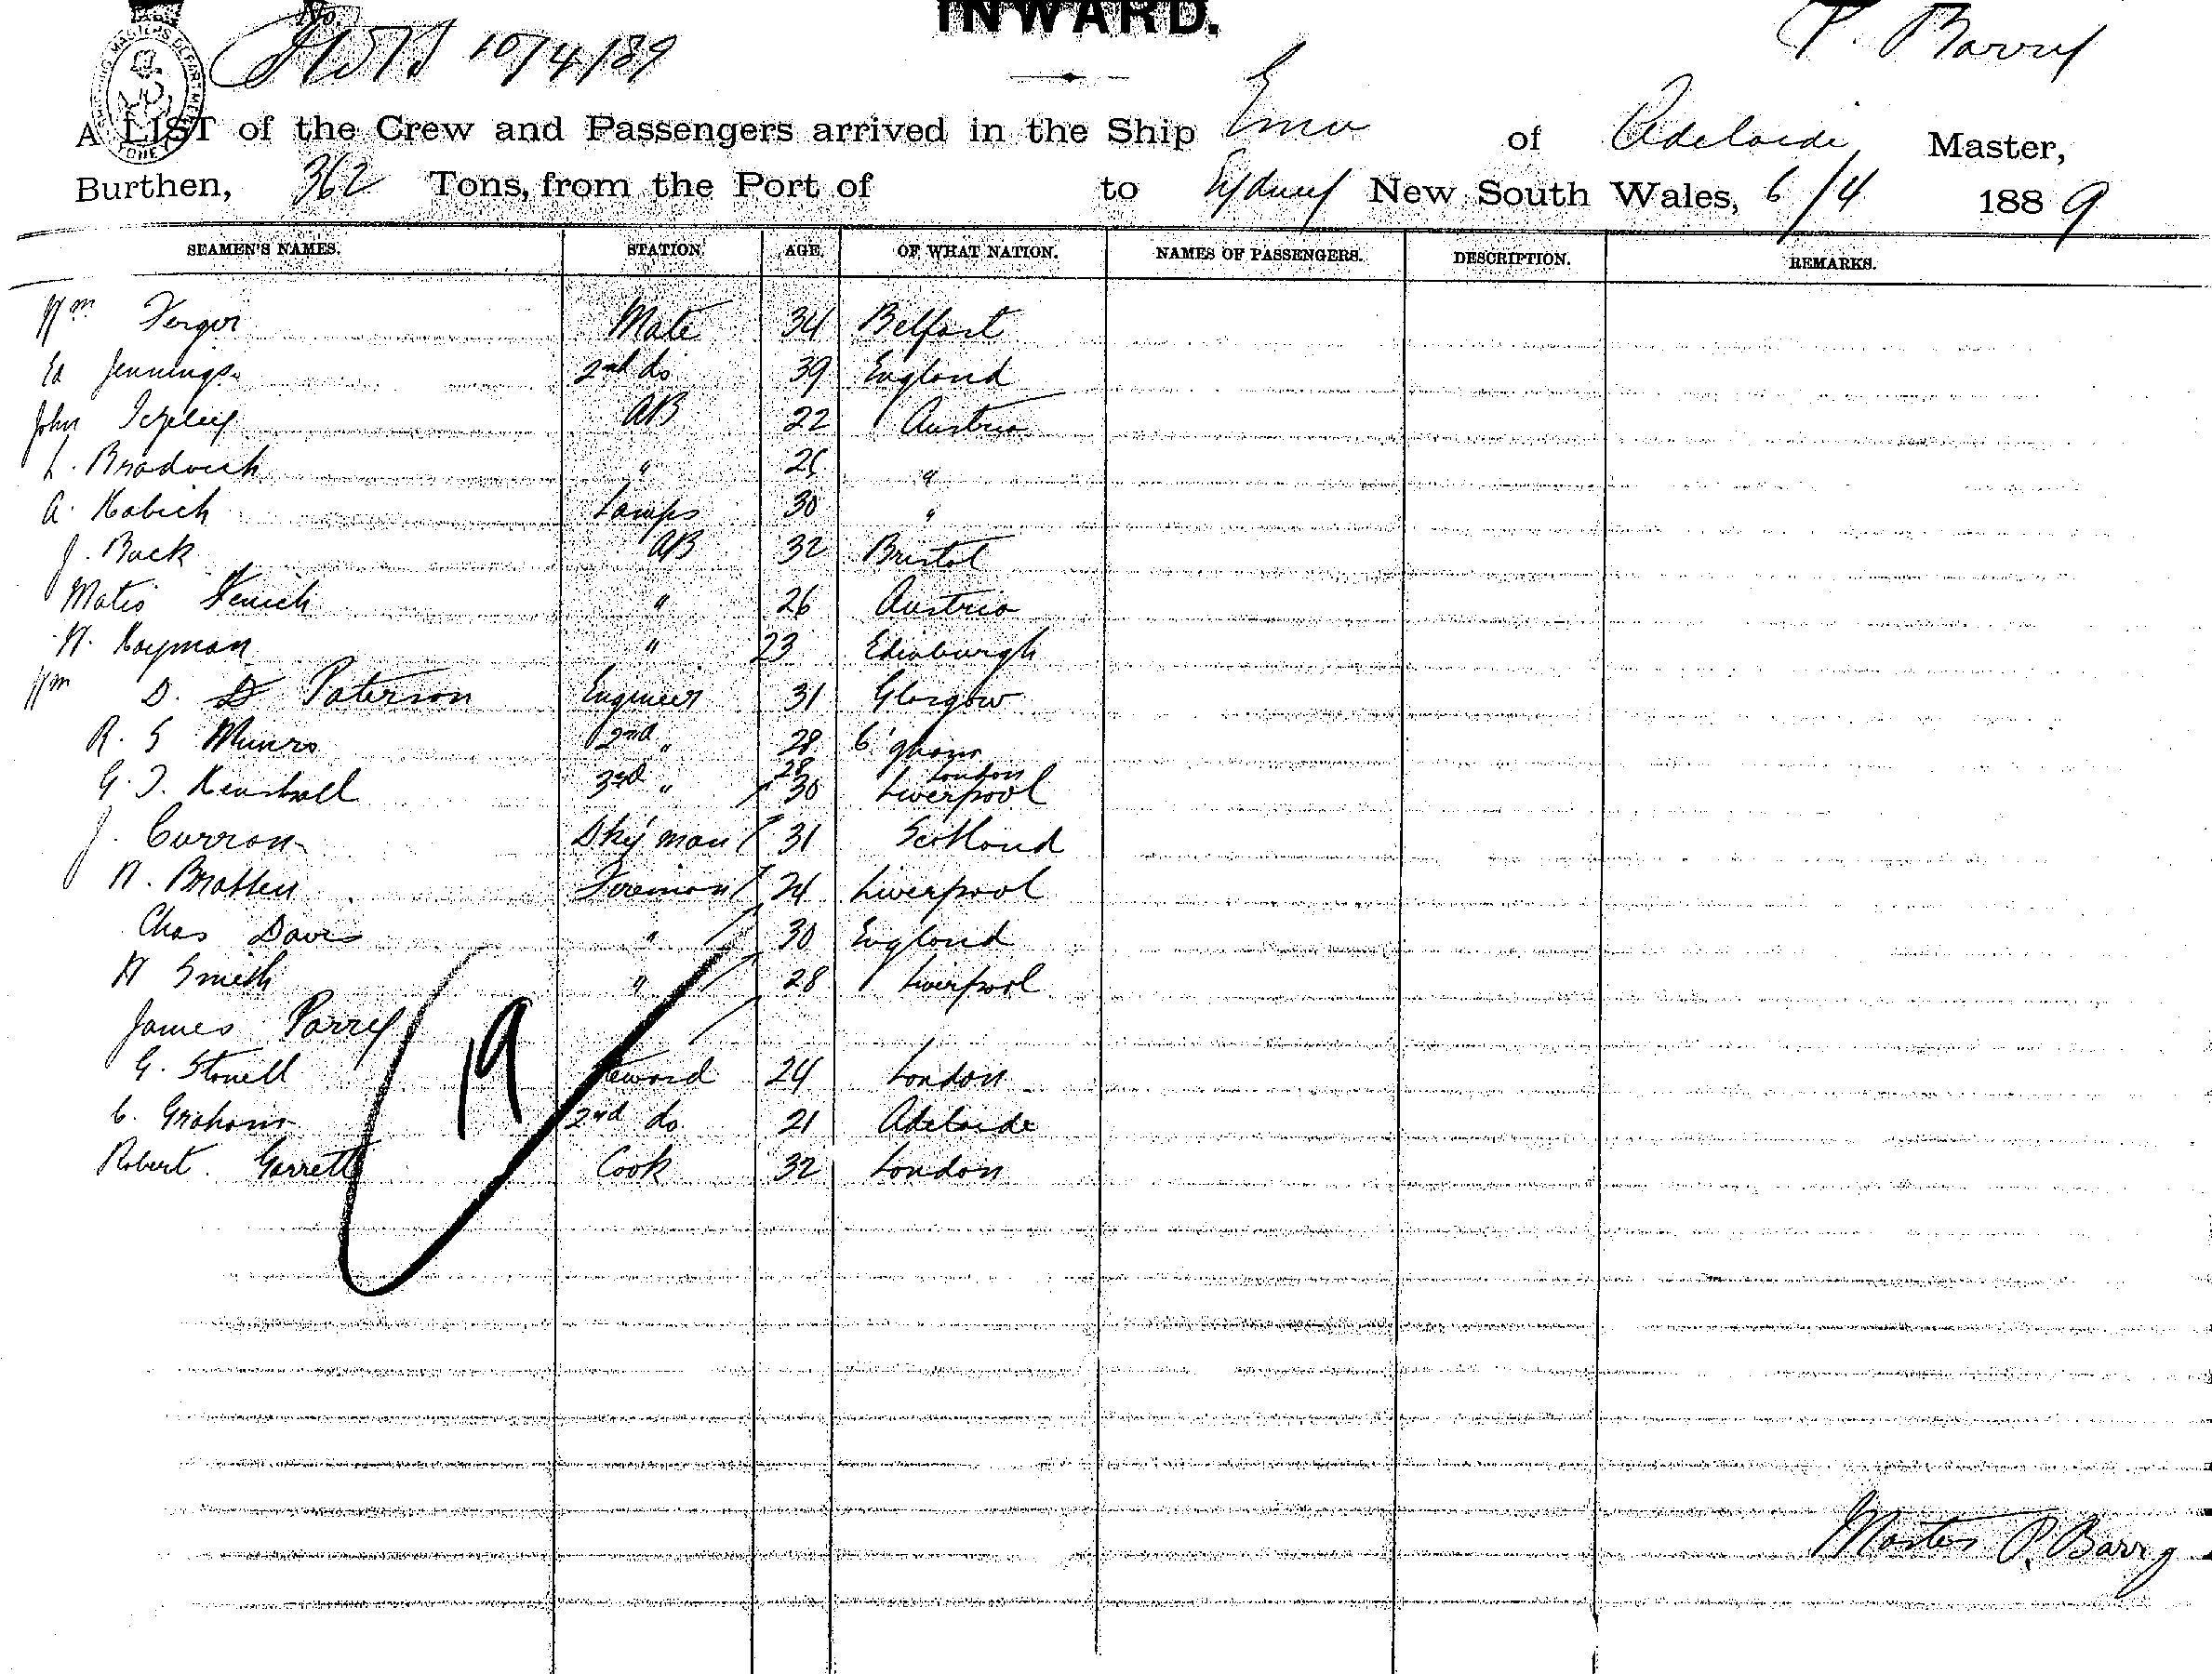 No.
INWARD.
10/4/89
P. Barry
A LIST of the Crew and Passengers arrived in the Ship Emu of Adelaide Master,
Burthen, 362 Tons, from the Port of to Sydney New South Wales, 6/4 1889
SEAMEN'S NAMES. STATION. AGE. OF WHAT NATION. NAMES OF PASSENGERS. DESCRIPTION. REMARKS.
Wm Mate 34 Belfast
Ed Jennings 2nd do 39 England
John AB 22 Austria
L. Bradvich " "
A. Kabich Lamps 30 "
J. Back AB 32 Bristol
Matio " 26 Austria
W. Hayman " 23 Edinburgh
Wm D. D Paterson Engineer 31 Glasgow
R. S Munro 2nd " 28
28 London
G. T. 3rd " 30 Liverpool
J. Curran Dky man 31 Scotland
Fireman 24 Liverpool
Chas Davis " 30 England
W Smith " 28 Liverpool
James Parry
G. Steward 24 London
C. Graham 2nd do 21 Adelaide
Robert Garrett Cook 32 London
19
Master P. Barry